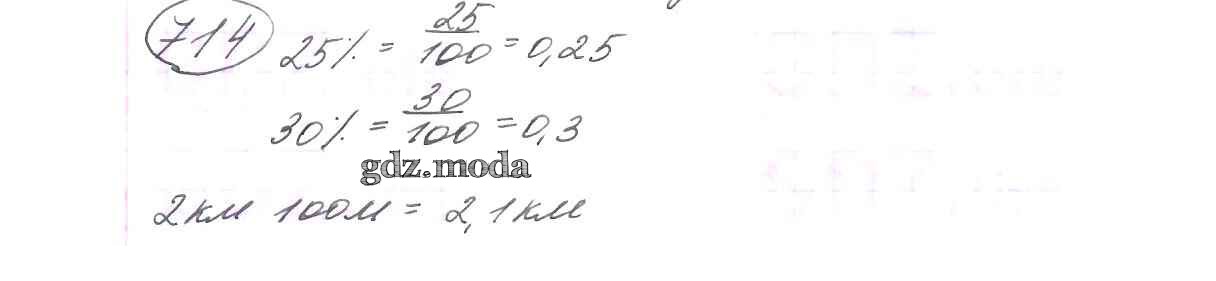 714 25% = 25/100 = 0,25
30% = 30/100 = 0,3
gdz.moda
2км 100м = 2,1км